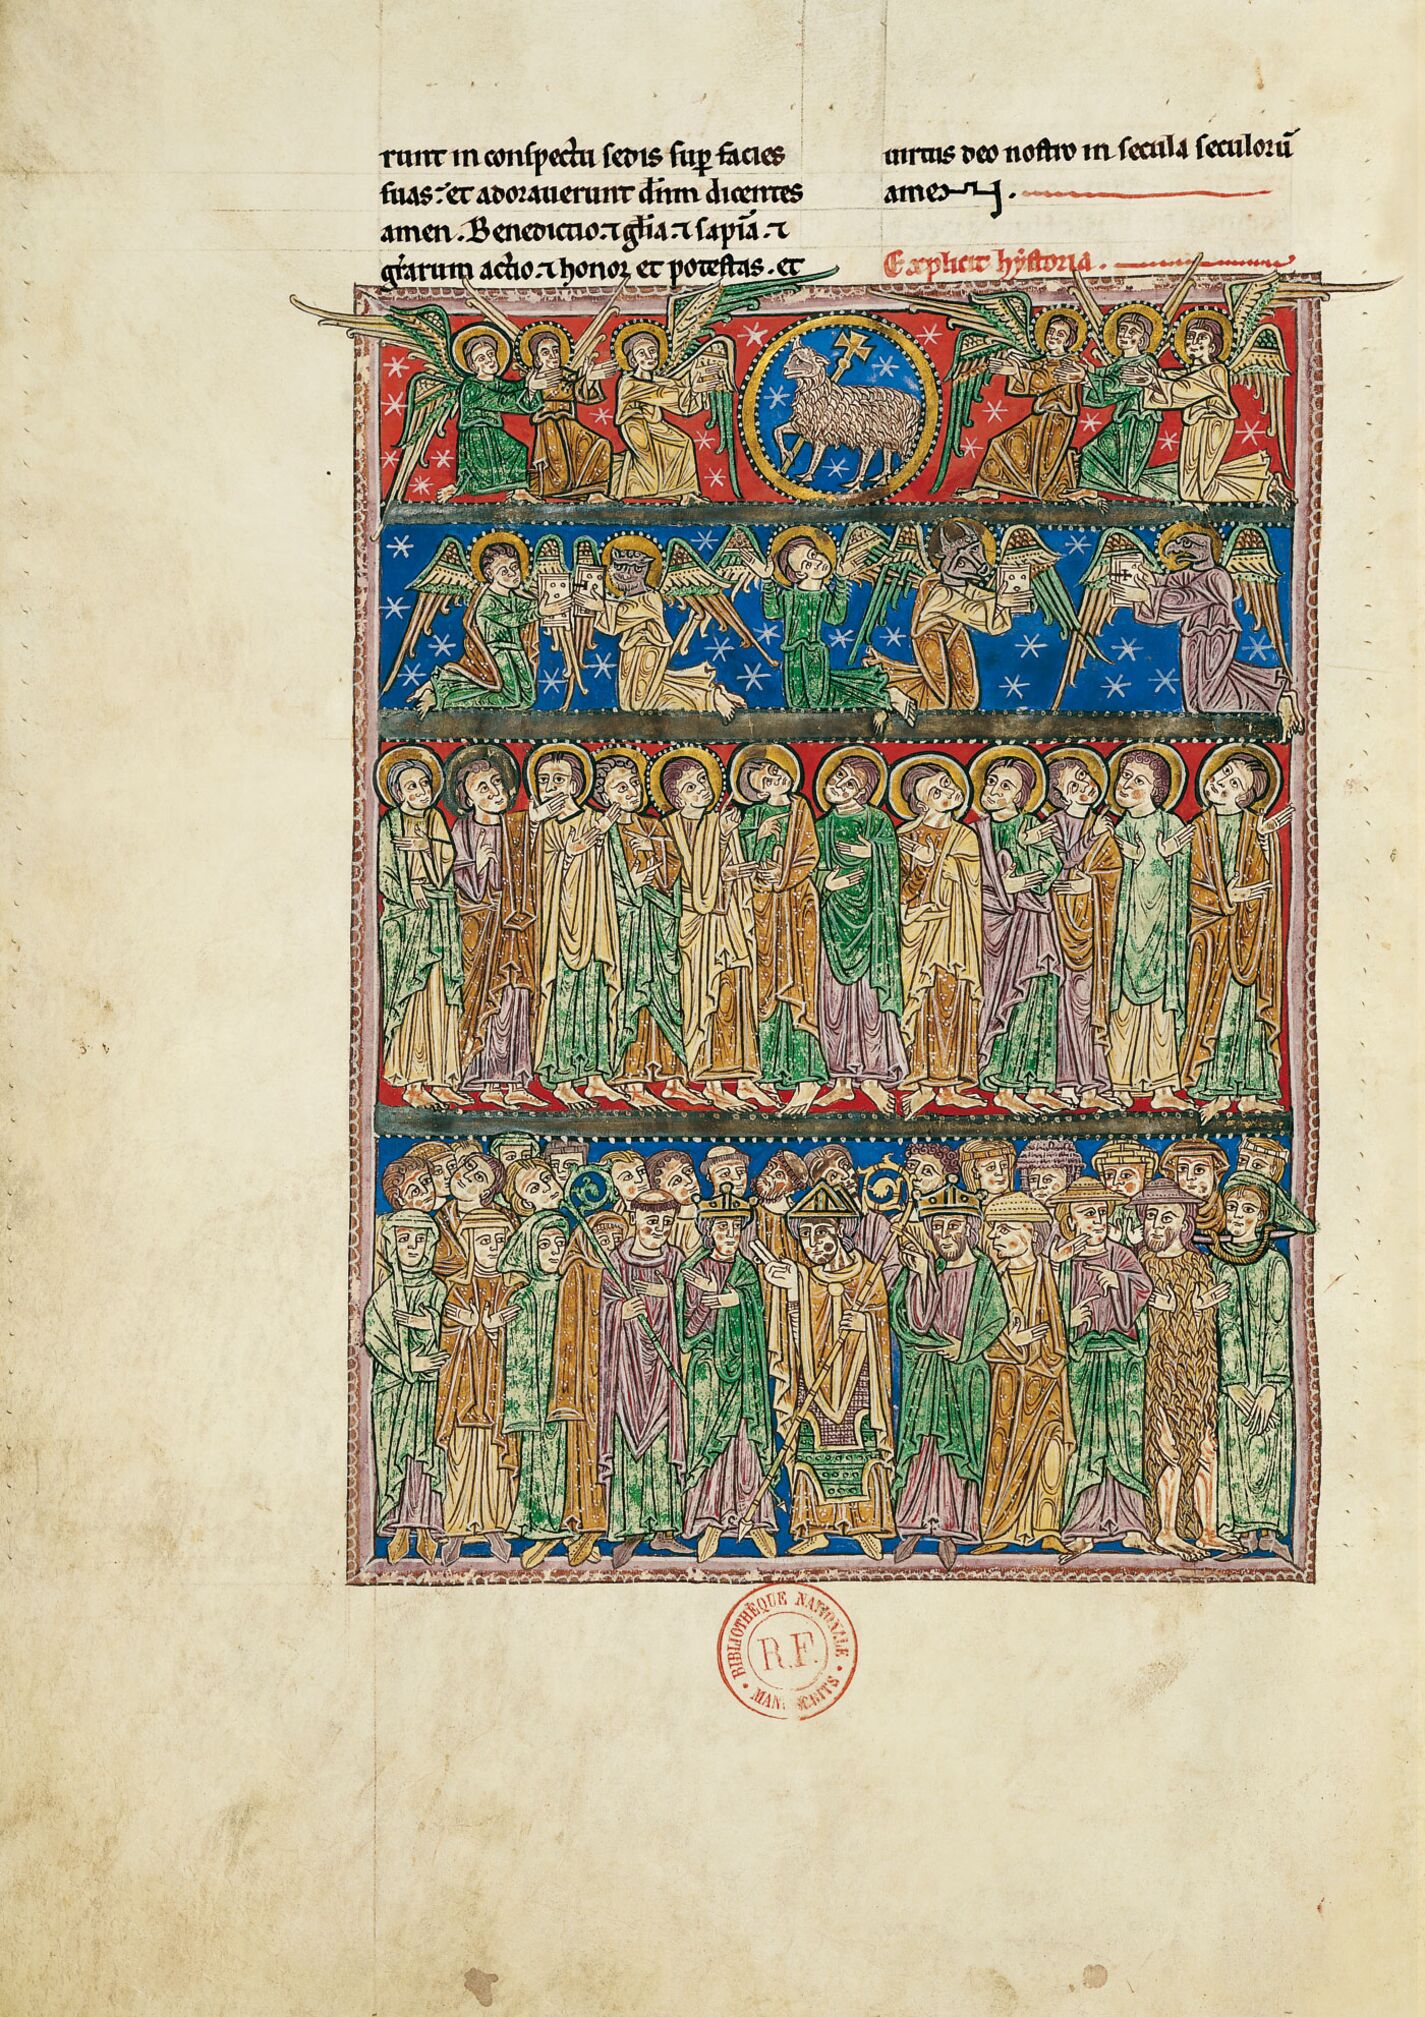 runt in conspectu sedis sup̱ facies
suas: et adorauerunt dñm dicentes
amen. Benedictio. ⁊ gl̃ia. ⁊ sapiã. ⁊
gr̃arum actio. ⁊ honor et potestas. et
uirtus deo nostro in secula seculorũ
amen.
Explicit hystoria.
BIBLIOTHÈQUE NATIONALE
R.F.
MANUSCRITS